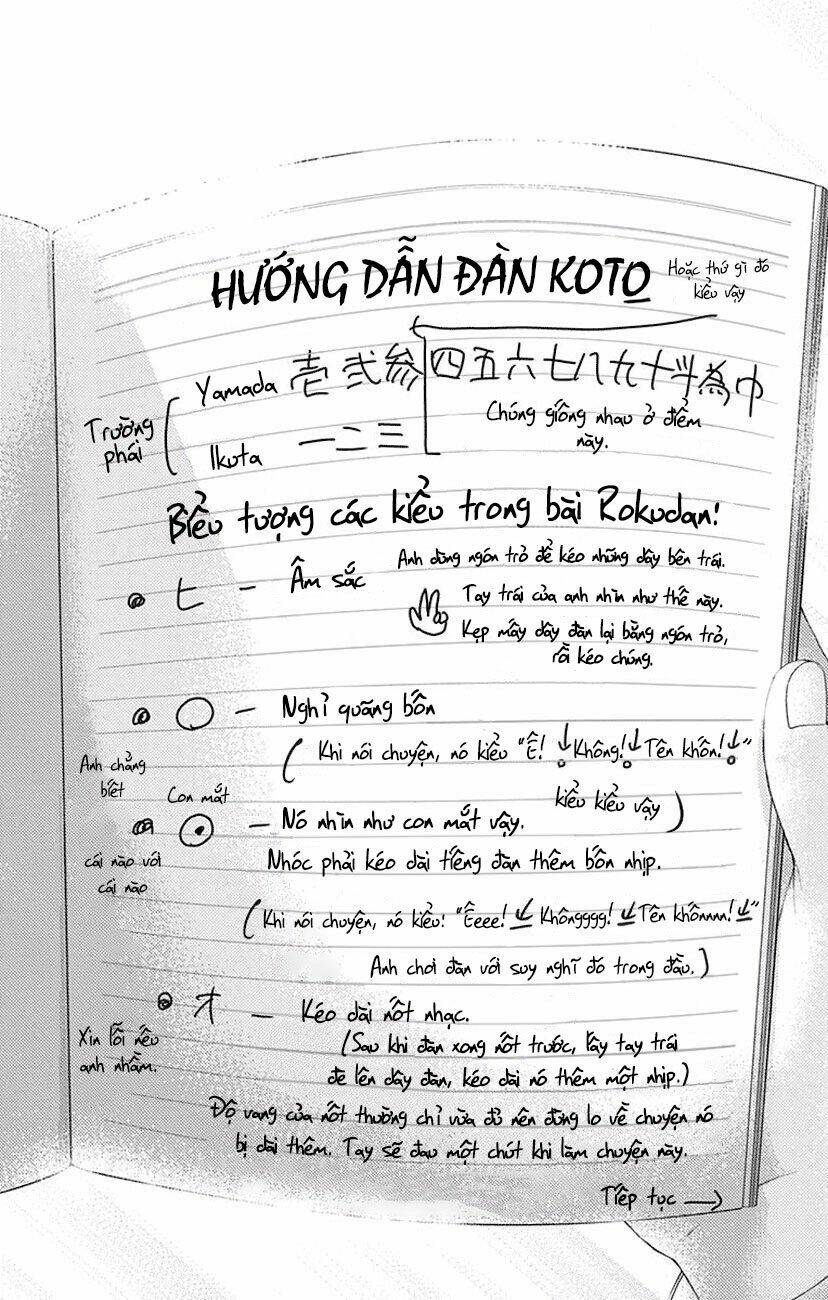 HƯỚNG DẪN ĐÀN KOTO
Hoặc thứ gì đó
kiểu vậy
Trường
phái
Yamada 壱 弐 参 四五六七八九十斗為巾
Chúng giống nhau ở điểm
này.
Ikuta 一二三
Biểu tượng các kiểu trong bài Rokudan!
ヒ – Âm sắc
Anh dùng ngón trỏ để kéo những dây bên trái.
Tay trái của anh nhìn như thế này.
Kẹp mấy dây đàn lại bằng ngón trỏ,
rồi kéo chúng.
○ – Nghỉ quãng bốn
( Khi nói chuyện, nó kiểu "Ê! ↓ Không! ↓ Tên khốn! ↓"
kiểu kiểu vậy )
Anh chẳng
biết
cái nào với
cái nào
Con mắt
⊙ – Nó nhìn như con mắt vậy.
Nhóc phải kéo dài tiếng đàn thêm bốn nhịp.
(Khi nói chuyện, nó kiểu! "Êeee! ↓ Khôngggg! ↓ Tên khốnnnn! ↓"
Anh chơi đàn với suy nghĩ đó trong đầu.)
オ – Kéo dài nốt nhạc.
Xin lỗi nếu
anh nhầm.
(Sau khi đàn xong nốt trước, lấy tay trái
đè lên dây đàn, kéo dài nó thêm một nhịp.)
Độ vang của nốt thường chỉ vừa đủ nên đừng lo về chuyện nó
bị dài thêm. Tay sẽ đau một chút khi làm chuyện này.
Tiếp tục →